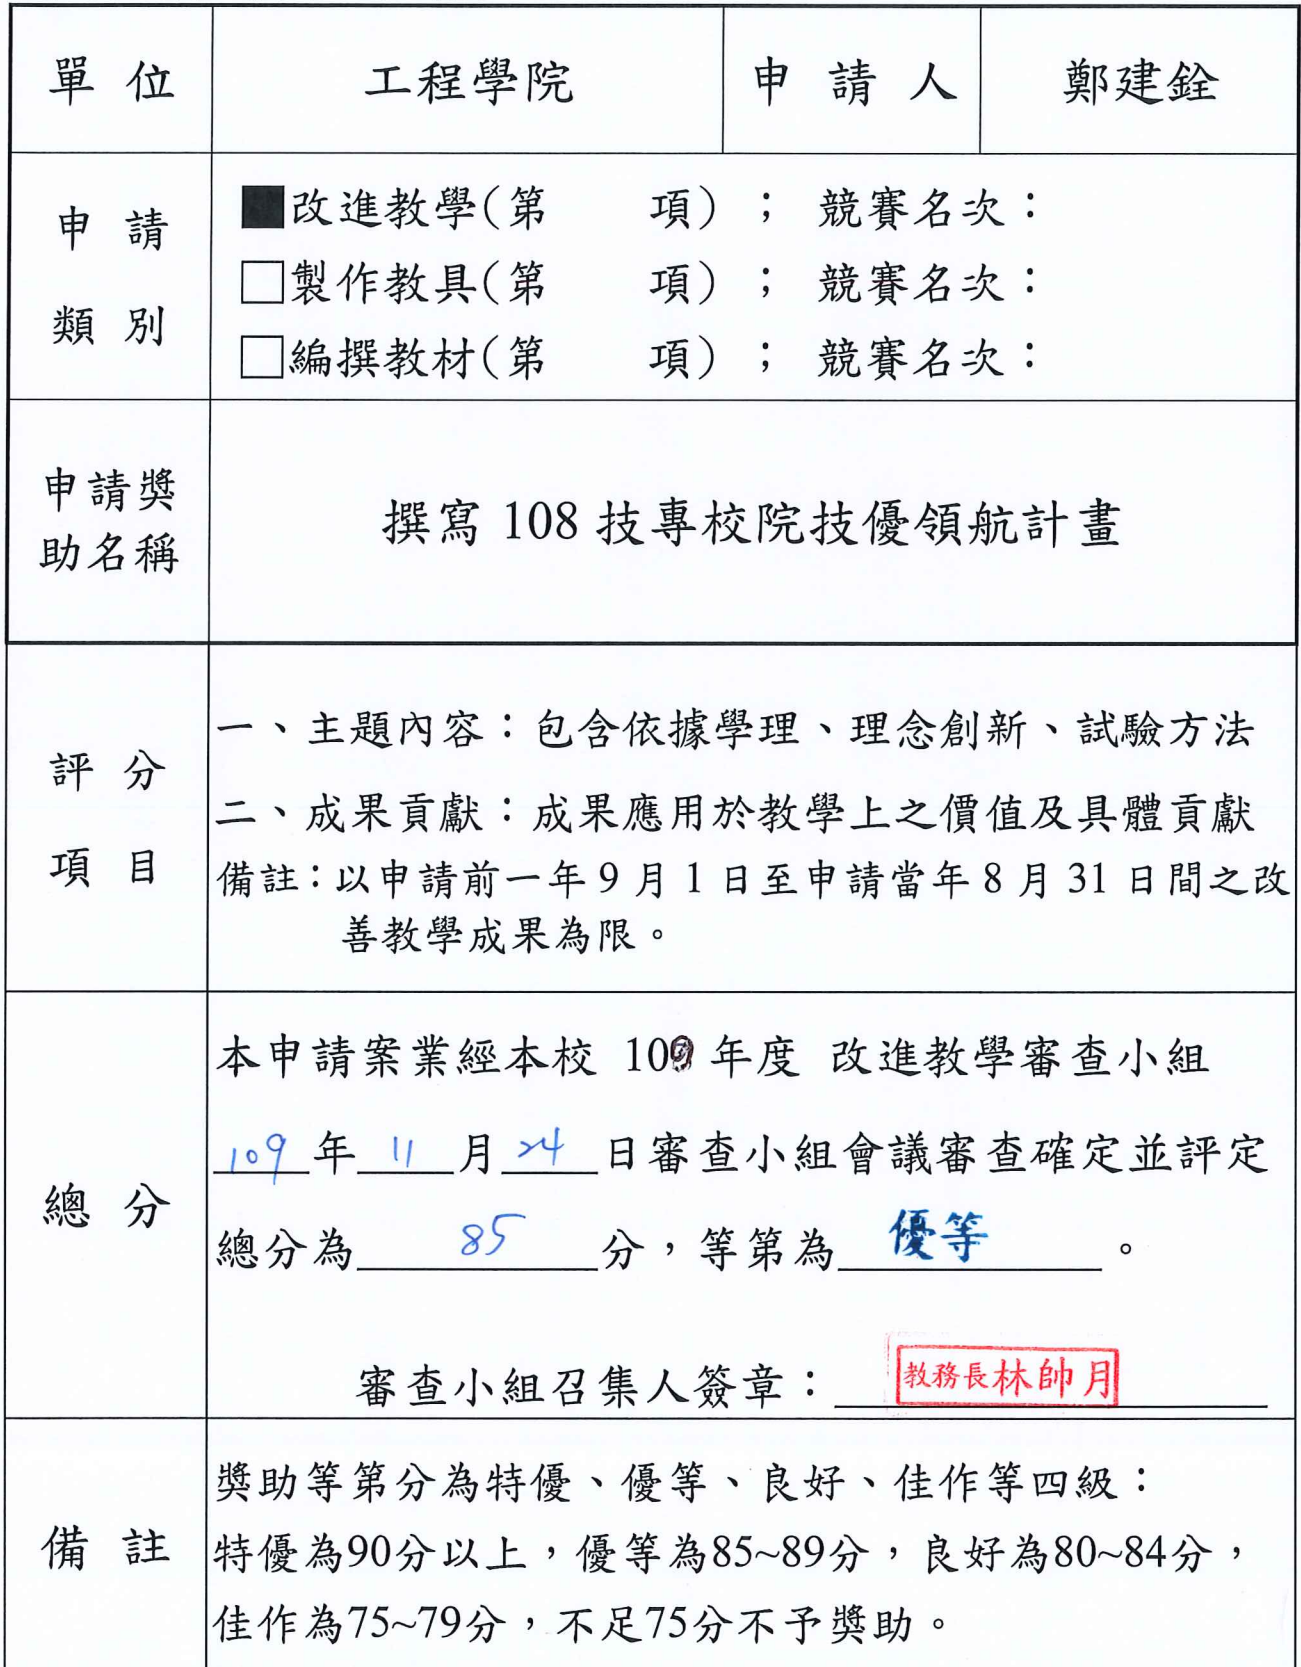 單 位 工程學院 申 請 人 鄭建銓
申 請 類 別
■改進教學(第 項) ; 競賽名次：
□製作教具(第 項) ; 競賽名次：
□編撰教材(第 項) ; 競賽名次：
申請獎
助名稱
撰寫 108 技專校院技優領航計畫
評 分
項 目
一、主題內容：包含依據學理、理念創新、試驗方法
二、成果貢獻：成果應用於教學上之價值及具體貢獻
備註：以申請前一年 9 月 1 日至申請當年 8 月 31 日間之改
善教學成果為限。
總 分
本申請案業經本校 109 年度 改進教學審查小組
109 年 11 月 24 日審查小組會議審查確定並評定
總分為 85 分，等第為 優等 。
審查小組召集人簽章： 教務長林帥月
備 註
獎助等第分為特優、優等、良好、佳作等四級：
特優為90分以上，優等為85~89分，良好為80~84分，
佳作為75~79分，不足75分不予獎助。